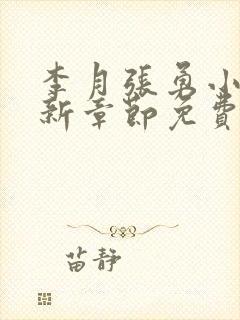 李月張勇小
新章節免費
苗靜